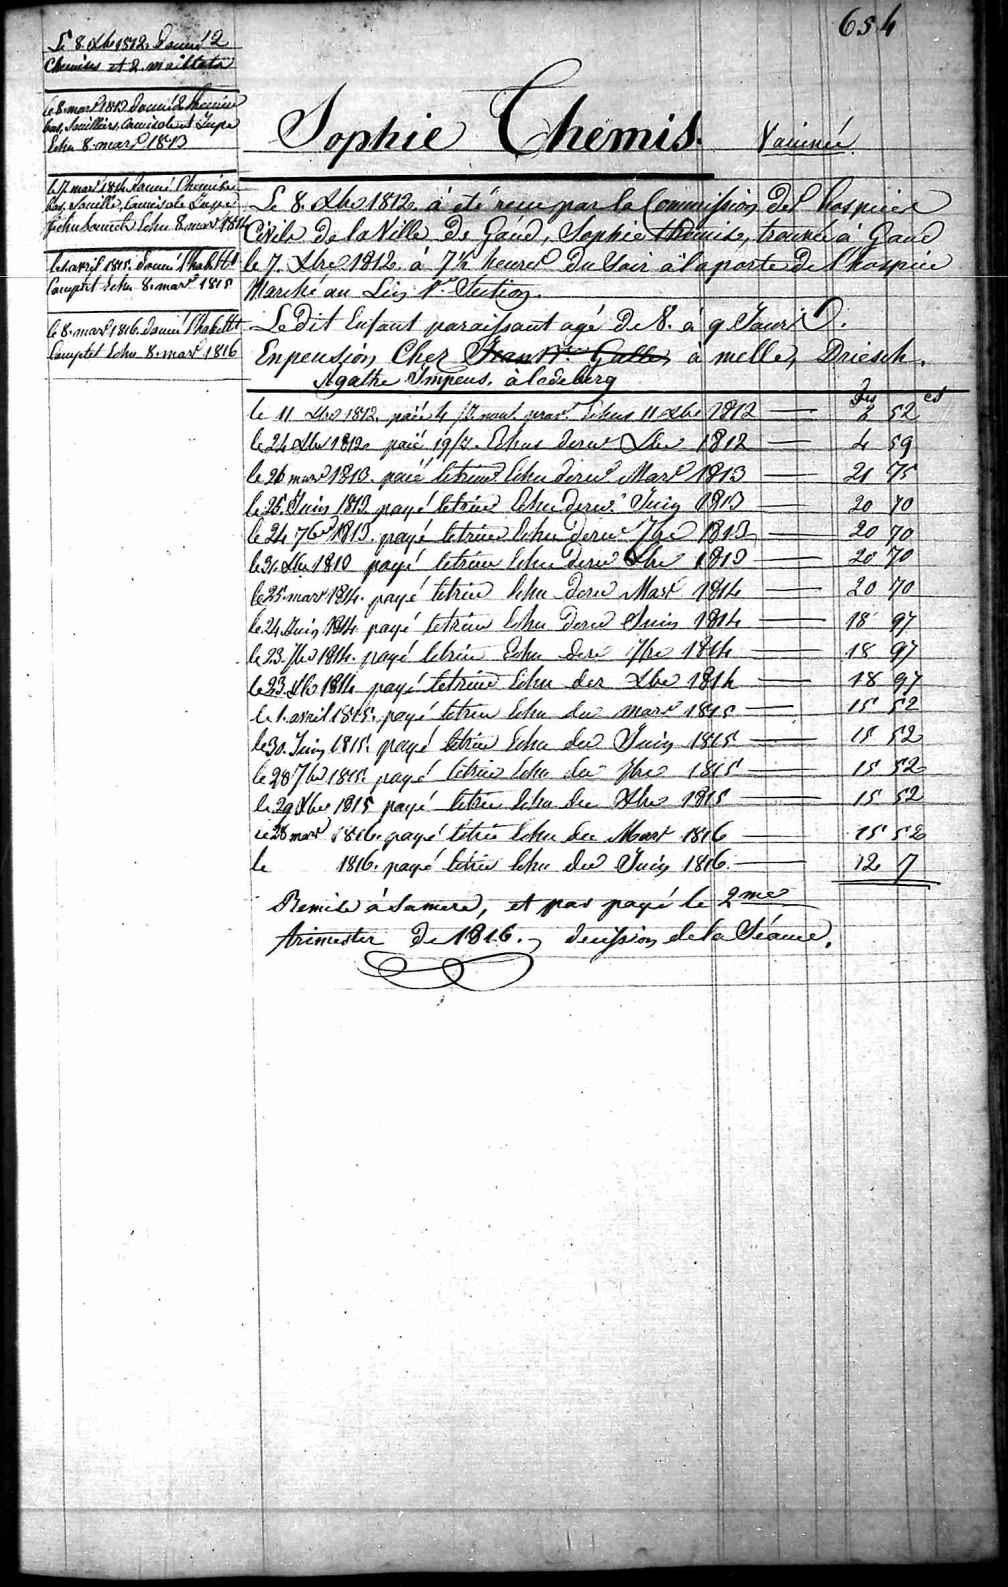 654
Le 8 Xbre 1812. Donné 2
Chemises et 2. maillots
le 8 mars 1813 Donné 2 Chemises
bas, Souilliers, Camisole et Jupe
Echu 8 mars 1813
le 12 mars 1814 Donné Chemise
bas, Soulle, Camisole Jupe
fichu bonnet Echu 8 mars 1814
le 1 avril 1815. Donné l'habillt
Complet Echu 8. mars 1815
le 8. mars 1816. Donné l'habillt
Complet Echu 8. mars 1816
Sophie Themis. Vaccinée
Le 8. Xbre 1812. à été reçu par la Commission des hospices
Civils de la Ville de Gand, Sophie themise, trouvée à Gand
le 7. Xbre 1812. à 7½ heures Du Soir à la porte de l'hospice
Marché au Lin 1re Section.
Le dit Enfant paraissant agé De 8. à 9 Jours.
En pension Chez Jean Bte Galle, à melle, Driesch.
Agathe Impens. à ledeberg
frs cs
le 11 Xbre 1812. paié 4 Echus 11 Xbre 1812 — 2 52
le 24 Xbre 1812 paié 19/J. Echus dernr Xbre 1812 — 4 59
le 26 mars 1813. paié le trime Echu dernr Mars 1813 — 21 75
le 25. Juin 1813 payé le trime Echu dernr Juin 1813 — 20 70
le 24 7bre 1813. payé le trime Echu dernr 7bre 1813 — 20 70
le 31 Xbre 1813 payé le trime Echu dernr Xbre 1813 — 20 70
le 25. mars 1814. payé le trime Echu dernr Mars 1814 — 20 70
le 24 Juin 1814. payé le trime Echu dernr Juin 1814 — 18 97
le 23 7bre 1814. payé le trime Echu der 7bre 1814 — 18 97
le 23 Xbre 1814 payé le trime Echu der Xbre 1814 — 18 97
le 1. avril 1815. payé le trime Echu der mars 1815 — 15 52
le 30. Juin 1815. payé le trime Echu der Juin 1815 — 15 52
le 28 7bre 1815 payé le trime Echu der 7bre 1815 — 15 52
le 29 Xbre 1815 payé le trime Echu der Xbre 1815 — 15 52
le 28 mars 1816. payé le trime Echu der Mars 1816 — 15 52
le 1816. payé le trime Echu der Juin 1816. — 12 7
Remise à Sa mere, et pas payé le 2me
trimestre de 1816., decission de la Séance.